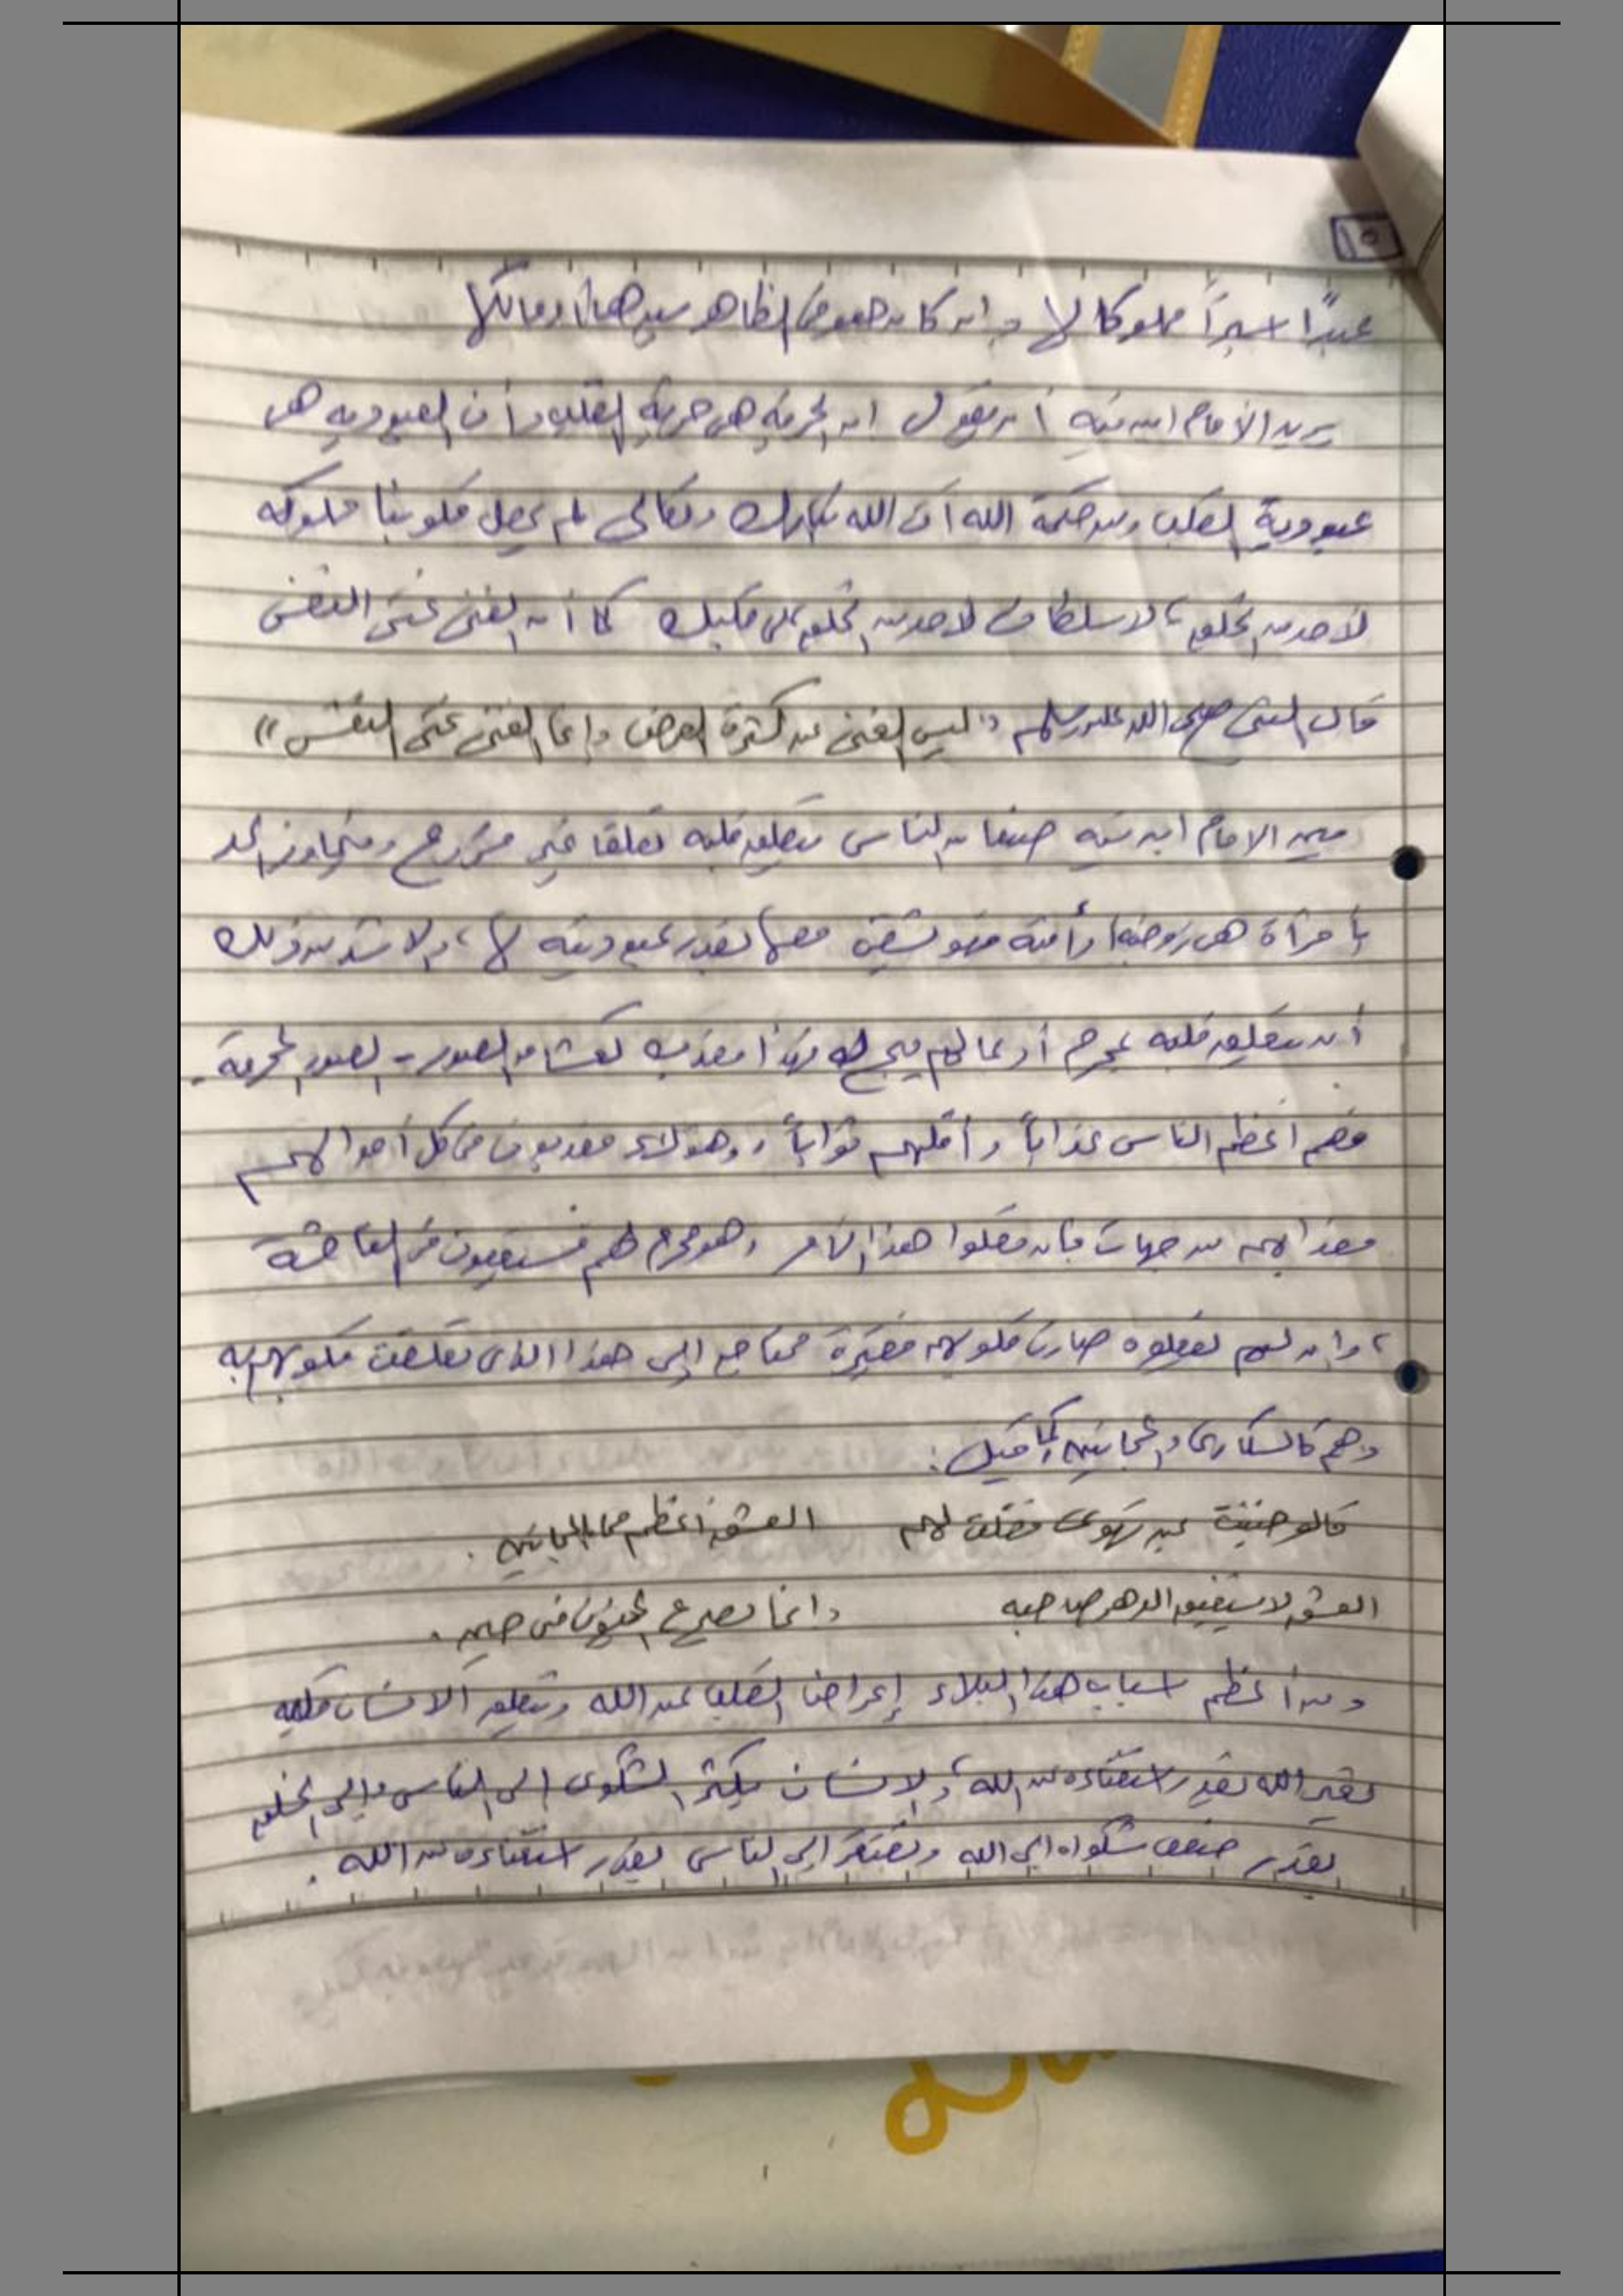 ١٥
عبداً اسيراً مملوكا لها وإن كان هو في الظاهر سيدها أو مالكها
يريد الامام ابن تيمية أن يقول ان الحرية هي حرية القلب وأن العبودية هي
عبودية القلب ومن حكمة الله أن الله تبارك وتعالى لم يجعل قلوبنا مملوكه
لأحد من الخلق، لا سلطان لأحد من الخلق على قلبك كما أن الغنى غنى النفس
قال النبي صلى الله عليه وسلم "ليس الغنى عن كثرة العرض وإنما الغنى غنى النفس"
يبين الامام ابن تيمية صنفا من الناس يتعلق قلبه تعلقا غير شرعي ومتجاوز الحد
بأمرأة هي زوجته أو أمته فهو شقي معها بقدر عبوديته لها، والاشد من ذلك
أن يتعلق قلبه بمحرم أو بما لم يبح له فهذا معذب كعشاق الصور - الصور المحرمة -
فهم أعظم الناس عذاباً وأقلهم ثواباً، وهؤلاء معذبون في كل أحوالهم
فعذابهم من جهات فإن فعلوا هذا الأمر وهو محرم لهم فسيقعون في الفاحشة
، وإن لم يفعلوه صارت قلوبهم فقيرة محتاجه إلى هذا الذي تعلقت قلوبهم به
وهم كالسكارى والمجانين كما قيل:
قالو جننت بمن تهوى فقلت لهم العشق أعظم مما بالمجانين.
العشق لا يستفيق الدهر صاحبه وانما يصرع المجنون في حين.
ومن أعظم اسباب هذا البلاء إعراض القلب عن الله وتعلق الانسان قلبه
بغير الله بقدر استغناءه عن الله، والانسان يكثر الشكوى إلى الناس وإلى الخلق
بقدر ضعف شكواه إلى الله ويفتقر إلى الناس بقدر استغناءه عن الله.